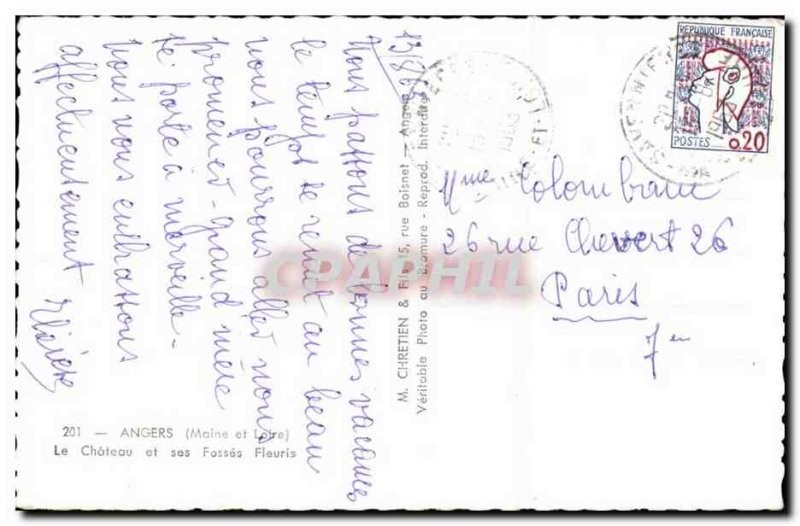 1386
Nous passons de bonnes vacances
le temps se remet au beau
nous pourrons aller nous
promener - grand mère
se porte à merveille -
Nous vous embrassons
affectueusement
Mme Colombani
26 rue Chevert 26
Paris
7en
REPUBLIQUE FRANÇAISE
POSTES
0,20
M. CHRETIEN & Fils 15, rue Boisnet - Angers
Véritable Photo au Bromure - Reprod. Interdite
201 — ANGERS (Maine et Loire)
Le Château et ses Fossés Fleuris
CPAPHIL